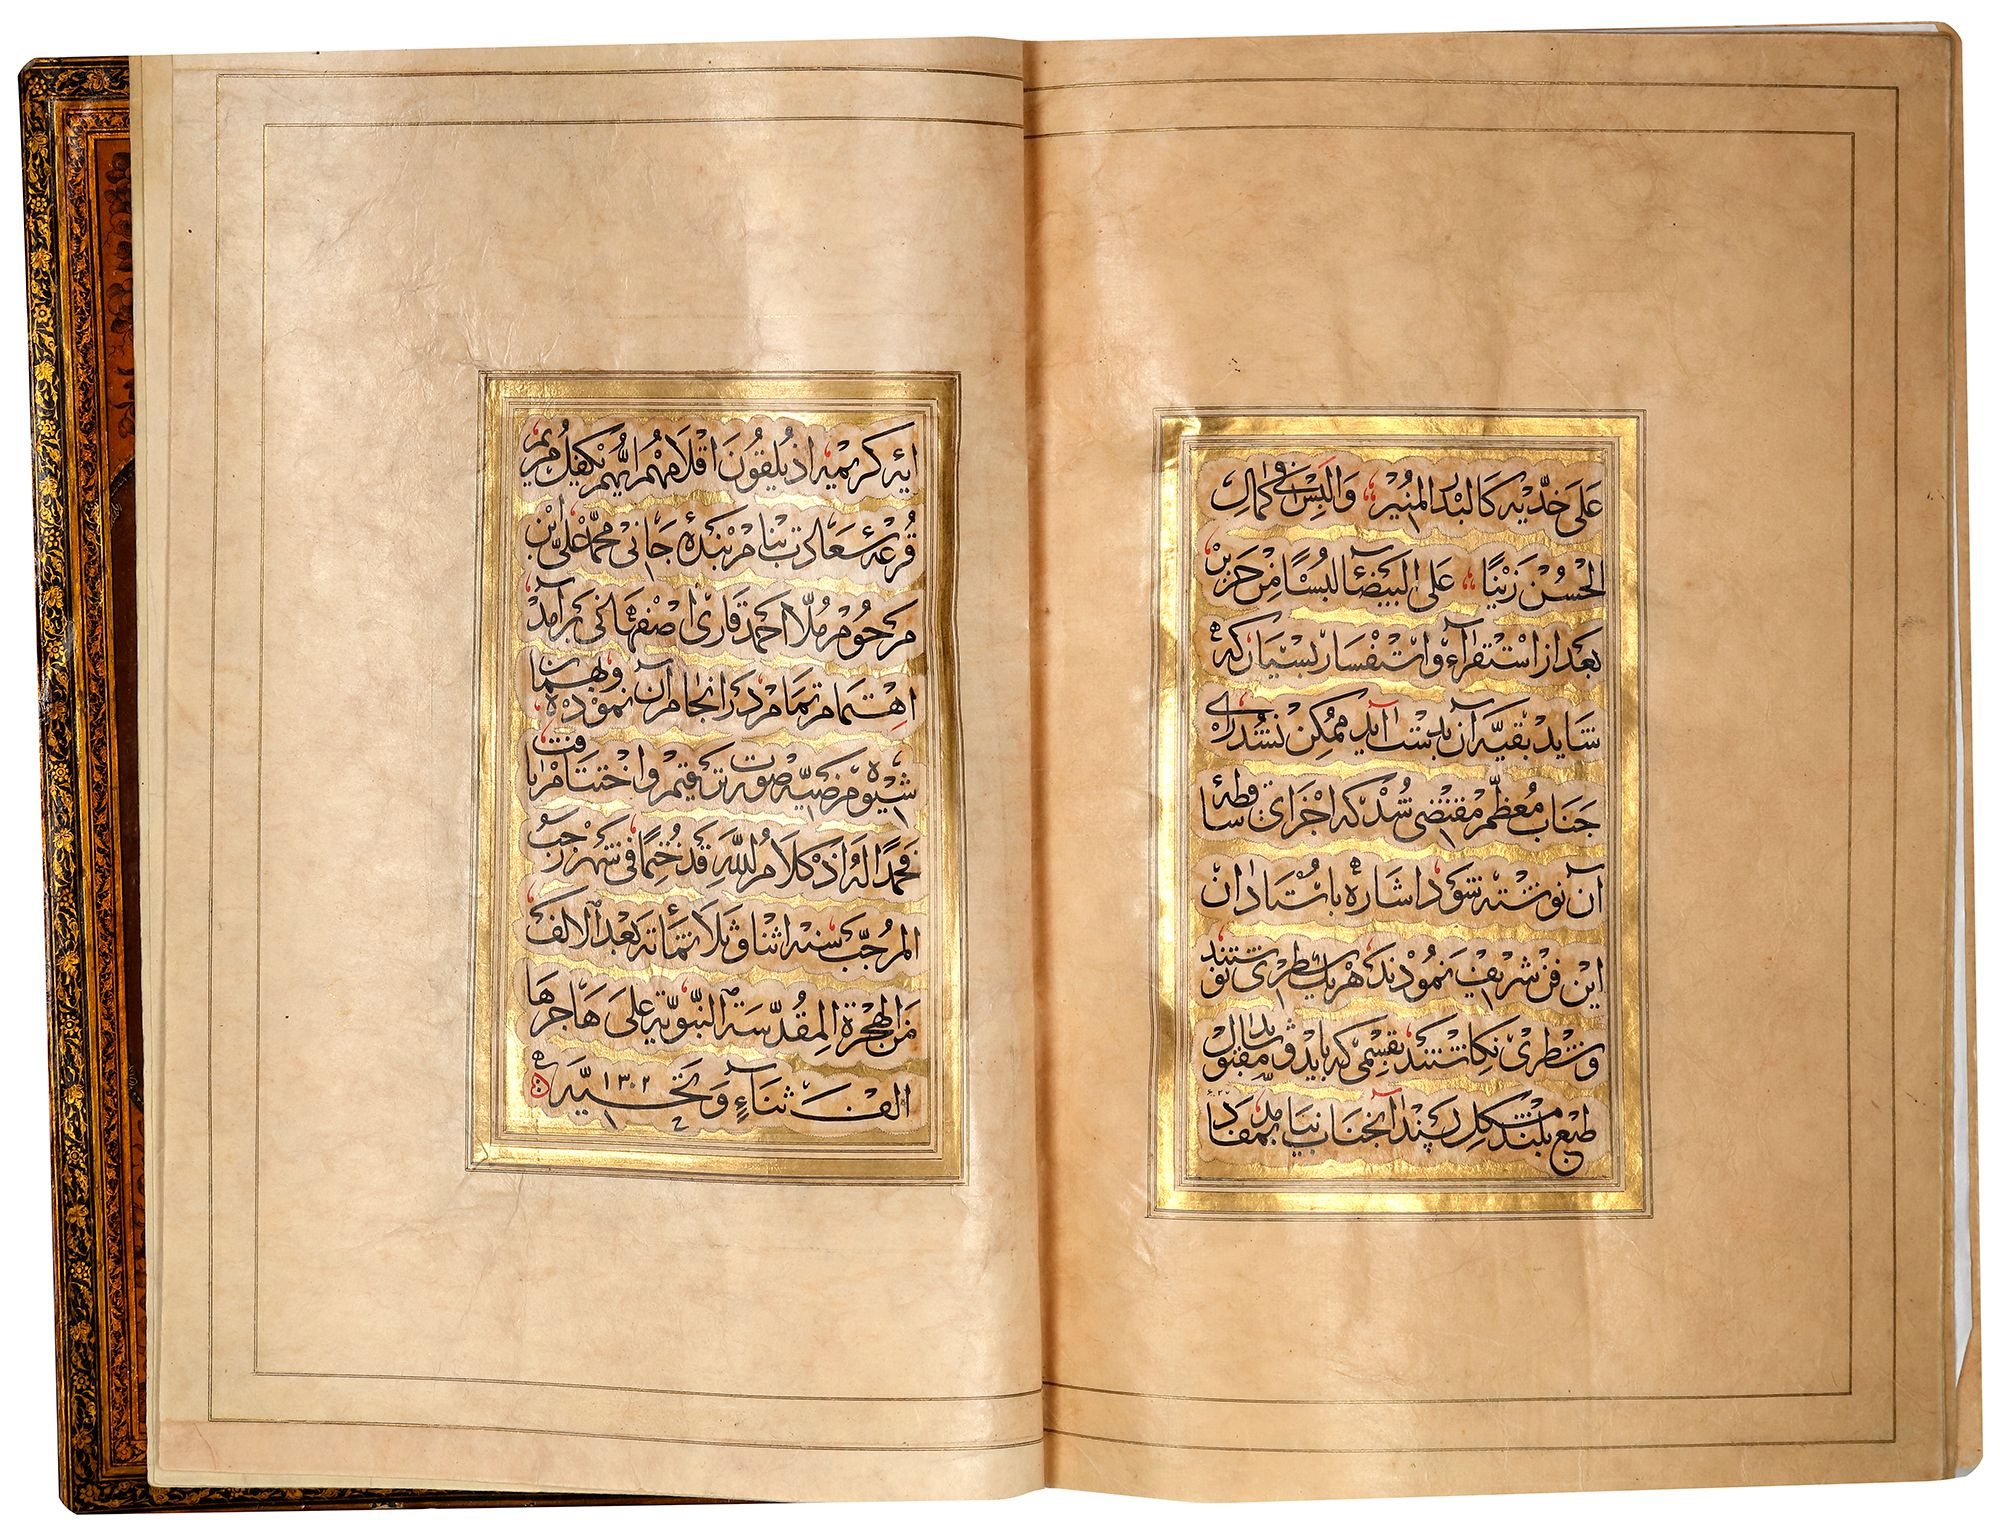 عَلَی خَدَّیهِ کَالبَدرِ المُنیر وَاَلبَسَ فی کمالِ
الحُسْنِ زَیْنًا عَلَی البَیضَآءِ لُبسًا مِن حَریرٍ
بعد از اسْتقرآء و استفسار بسیار که
شاید بقیه آن بدست آید ممکن نشد رای
جناب معظم مقتضی شد که اجزای ساقطهٔ
آن نوشته شود اشاره باستادان
این فن شریف نمودند هر یک سطری نوشتند
و شطری نکاشتند بقسمی که باید و شاید مقبول
طبع بلند مشکل پسند آنجناب نیامد بمفاد
ایهٔ کریمه اذ یلقون اقلامهم ایهم یکفل مریم
قرعهٔ سعادت بنام بندهٔ جانی محمد علی ابن
مرحوم ملا احمد قاری اصفهانی بر آمد
اهتمام تمام در انجام آن نموده و بهمان
شیوه مرضیه صورت ترقیم و اختتام یافت
فحمدًا له اذ کلام الله قد ختما فی شهر رجب
المرجب سنه اثنا و ثلاثمائه بعد الالف
من الهجرة المقدسة النبویة علی هاجرها
الف ثناءٍ و تحیة ١٣٠٢